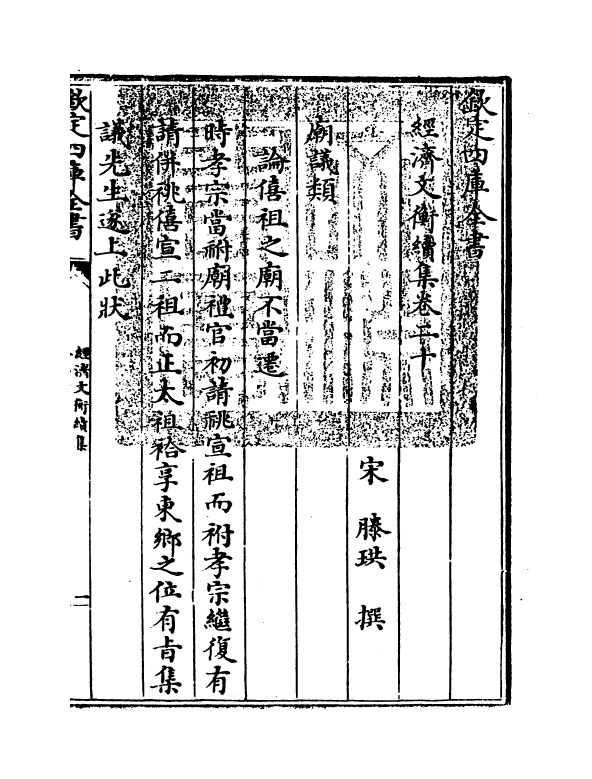 欽定四庫全書
經濟文衡續集卷二十
宋 滕珙 撰
廟議類
論僖祖之廟不當遷
時孝宗當祔廟禮官初請祧宣祖而祔孝宗繼復有
請併祧僖宣二祖而正太祖祫享東鄉之位有旨集
議先生遂上此狀
欽定四庫全書
經濟文衡續集